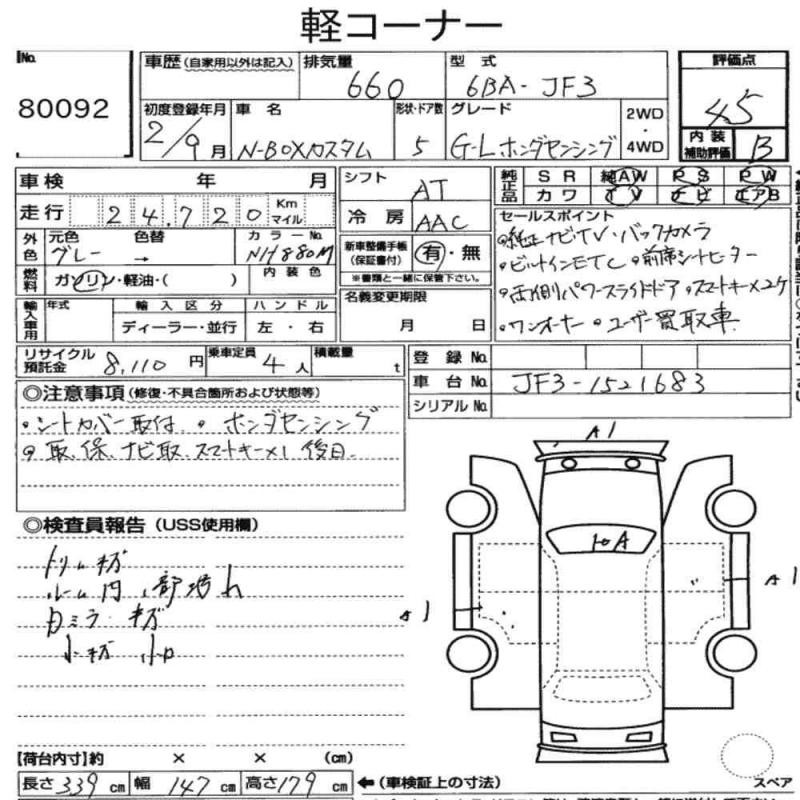 軽コーナー
No.
80092
車歴 (自家用以外は記入)
排気量
660
型式
6BA-JF3
評価点
4.5
初度登録年月
2/9月
車名
N-BOXカスタム
形状・ドア数
5
グレード
G-Lホンダセンシング
2WD
・
4WD
内装
補助評価
B
車検 年 月
シフト
AT
純正品
SR 純AW PS PW
カワ TV ナビ エアB
走行 24,720 Km
マイル
冷房
AAC
セールスポイント
外色
元色 色替 カラーNo.
グレー → NH880M
新車整備手帳
(保証書付)
有・無
※書類と一緒に保管下さい。
・純正ナビTV・バックカメラ
・ビルトインETC ・前席シートヒーター
・両側パワースライドドア ・スマートキー×2ケ
・ワンオーナー ・ユーザー買取車
燃料
ガソリン・軽油・( )
内装色
輸入車用
年式
輸入区分
ハンドル
ディーラー・並行
左・右
名義変更期限
月 日
リサイクル
預託金
8,110円
乗車定員
4人
積載量
t
登録No.
車台No. JF3-1521683
シリアルNo.
◎注意事項 (修復・不具合箇所および状態等)
・シートカバー取付 ・ホンダセンシング
・取、保、ナビ取、スマートキー×1 後日
◎検査員報告 (USS使用欄)
トリムキズ
ルーム内、部汚れ
キズ
小キズ 小凹
A1
A1
A1
【荷台内寸】約 × × (cm)
長さ 339 cm 幅 147 cm 高さ 179 cm
←(車検証上の寸法)
スペア